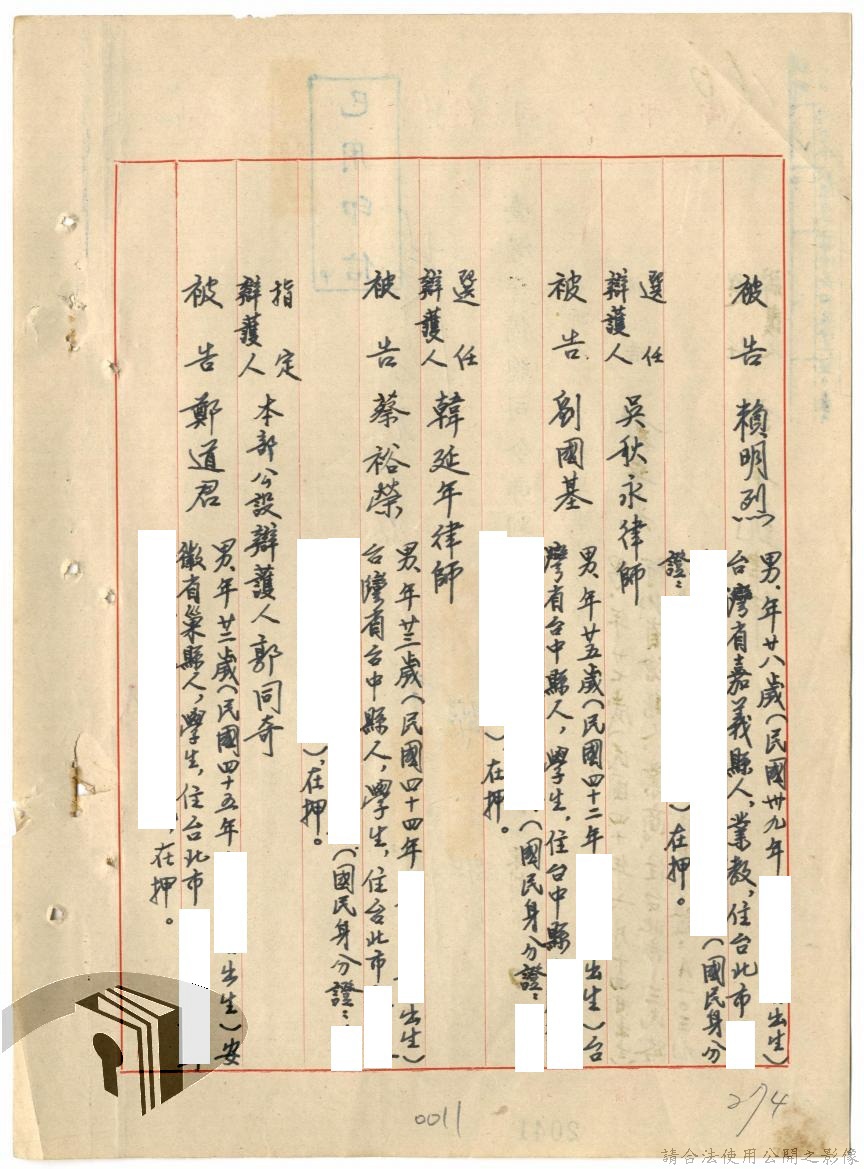 被告 賴明烈 男、年廿八歲(民國卅九年
出生)
台灣省嘉義縣人,業教,住台北市
(國民身分
證:
),在押。
選任
辯護人 吳秋永律師
被告 劉國基 男、年廿五歲(民國四十二年
出生)台
灣省台中縣人,學生,住台中縣
(國民身分證:
),在押。
選任
辯護人 韓延年律師
被告 蔡裕榮 男、年廿三歲(民國四十四年
出生)
台灣省台中縣人,學生,住台北市
(國民身分證:
),在押。
指定
辯護人 本部公設辯護人郭同奇
被告 鄭道君 男、年廿二歲(民國四十五年
出生)安
徽省巢縣人,學生,住台北市
,在押。
已用印信
0011
274
2041
請合法使用公開之影像